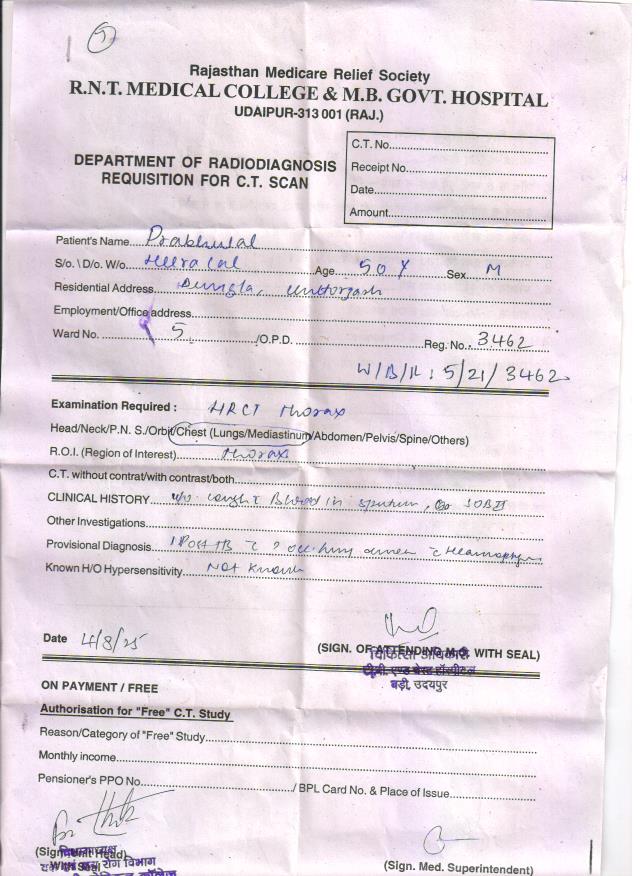 5
Rajasthan Medicare Relief Society
R.N.T. MEDICAL COLLEGE & M.B. GOVT. HOSPITAL
UDAIPUR-313 001 (RAJ.)
DEPARTMENT OF RADIODIAGNOSIS
REQUISITION FOR C.T. SCAN
C.T. No.
Receipt No.
Date
Amount
Patient's Name Prabhulal
S/o. \ D/o. W/o Heera lal Age 50 Y Sex M
Residential Address Dungla,
Employment/Office address
Ward No. 5 /O.P.D. Reg. No. 3462
W/B/R : 5/21/3462
Examination Required : HRCT Thorax
Head/Neck/P.N. S./Orbit/Chest (Lungs/Mediastinum/Abdomen/Pelvis/Spine/Others)
R.O.I. (Region of Interest) Thorax
C.T. without contrat/with contrast/both
CLINICAL HISTORY Blood in sputum, SOB
Other Investigations
Provisional Diagnosis
Known H/O Hypersensitivity Not Known
Date 4/8/25
(SIGN. OF ATTENDING M.O. WITH SEAL)
चिकित्सा अधिकारी
टी.बी. एण्ड चेस्ट हॉस्पीटल
बड़ी, उदयपुर
ON PAYMENT / FREE
Authorisation for "Free" C.T. Study
Reason/Category of "Free" Study
Monthly income
Pensioner's PPO No. / BPL Card No. & Place of Issue
(Sign. Unit Head)
विभागाध्यक्ष
With Seal
रोग विभाग
(Sign. Med. Superintendent)